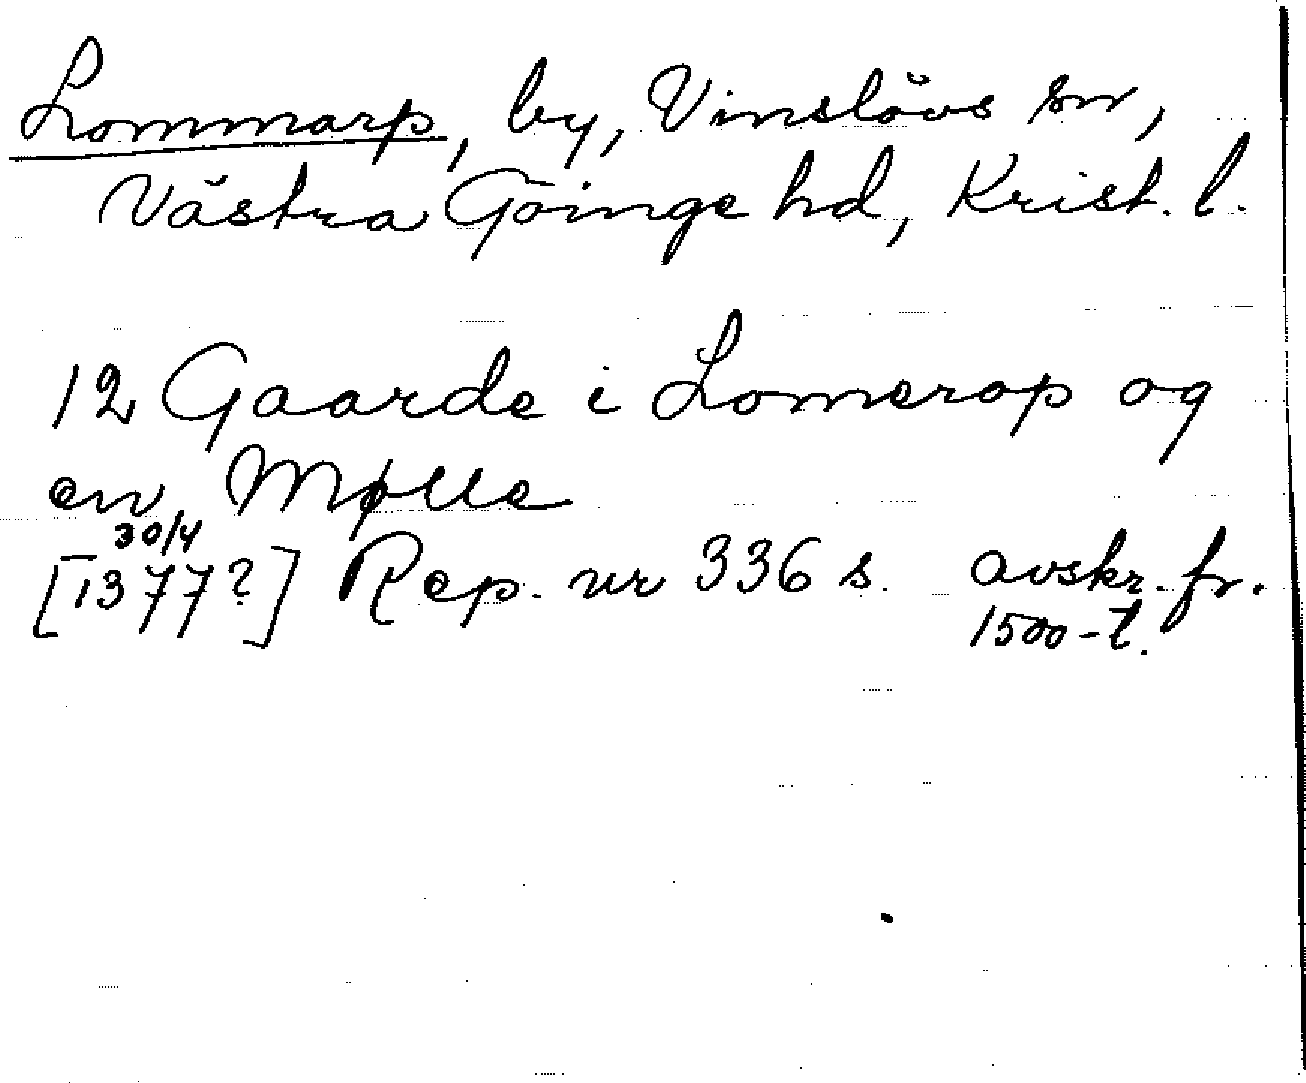 Lommarp, by, Vinslövs sn,
Västra Göinge hd, Krist. l.
12 Gaarde i Lomerop og
en Mølle
30/4
[1377?] Rep. nr 336 s. avskr. fr.
1500-t.